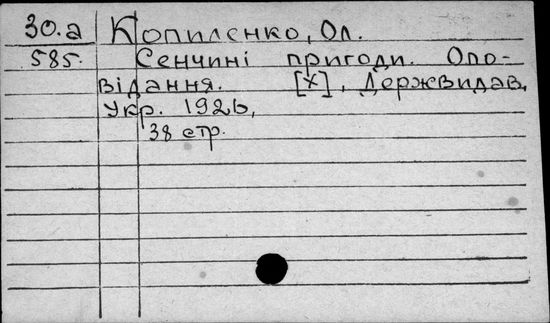 30.а Копиленко, Ол.
585. Сенчині пригоди. Опо-
відання. [Х], Держвидав,
Укр. 1926,
38 стр.